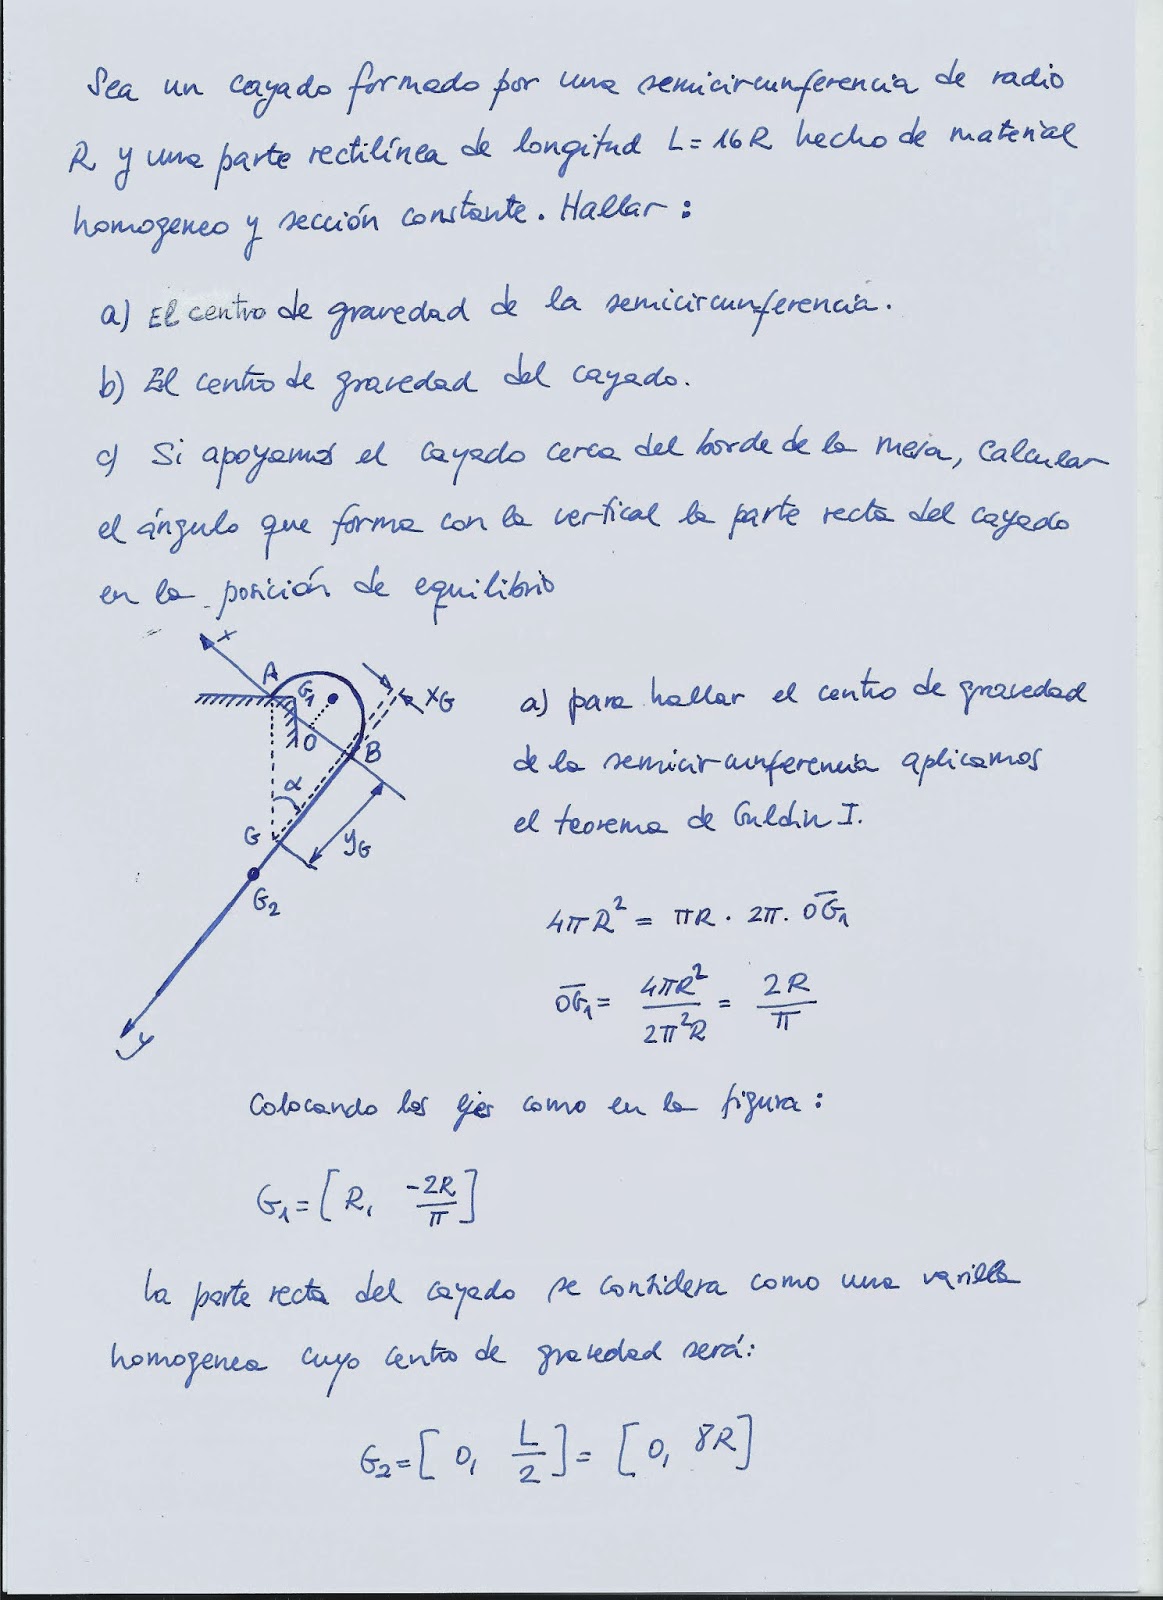 Sea un cayado formado por una semicircunferencia de radio
R y una parte rectilínea de longitud L=16R hecho de material
homogeneo y sección constante. Hallar:
a) El centro de gravedad de la semicircunferencia.
b) El centro de gravedad del cayado.
c) Si apoyamos el cayado cerca del borde de la mesa, calcular
el ángulo que forma con la vertical la parte recta del cayado
en la posición de equilibrio
x
A
G1
xG
O
B
α
G
yG
G2
y
a) para hallar el centro de gravedad
de la semicircunferencia aplicamos
el teorema de Guldin I.
4πR² = πR · 2π · OG1
OG1 = 4πR² / 2π²R = 2R / π
Colocando los ejes como en la figura:
G1 = [R, -2R/π]
la parte recta del cayado se considera como una varilla
homogenea cuyo centro de gravedad será:
G2 = [0, L/2] = [0, 8R]